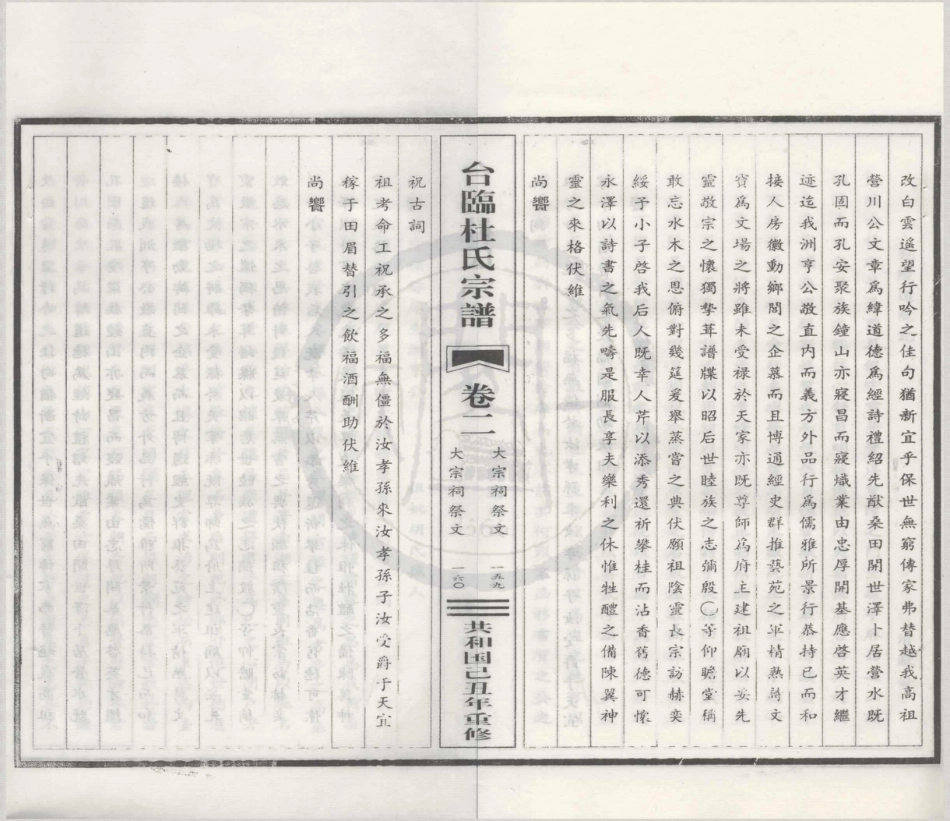 改白雲遙望行吟之佳句猶新宜乎保世無窮傳家弗替越我高祖
營川公文章為緯道德為經詩禮紹先猷桑田開世澤卜居營水既
孔固而孔安聚族鐘山亦寢昌而寢熾業由忠厚開基應啓英才繼
迹迄我洲亨公敬直内而義方外品行為儒雅所景行恭持已而和
接人房徽動鄉閭之企慕而且博通經史群推藝苑之 精熟詩文
實為文場之將雖未受禄於天家亦既尊師為府主建祖廟以妥先
靈敬宗之懷獨摯葺譜牒以昭后世睦族之志彌殷〇等仰瞻堂稱
敢忘水木之思俯對幾筵爰舉蒸嘗之典伏願祖陰靈長宗訪赫奕
綏予小子啓我后人既幸人芹以添秀還祈攀桂而沾香舊德可懷
永澤以詩書之氣先疇是服長享夫樂利之休惟牲醴之備陳冀神
靈之來格伏維
尚饗
台臨杜氏宗譜 卷二
大宗祠祭文 一五九
大宗祠祭文 一六〇
共和国己丑年重修
祝古詞
祖考命工祝承之多福無僵於汝孝孫來汝孝孫子汝受爵于天宜
稼于田眉替引之飲福酒酬助伏維
尚饗